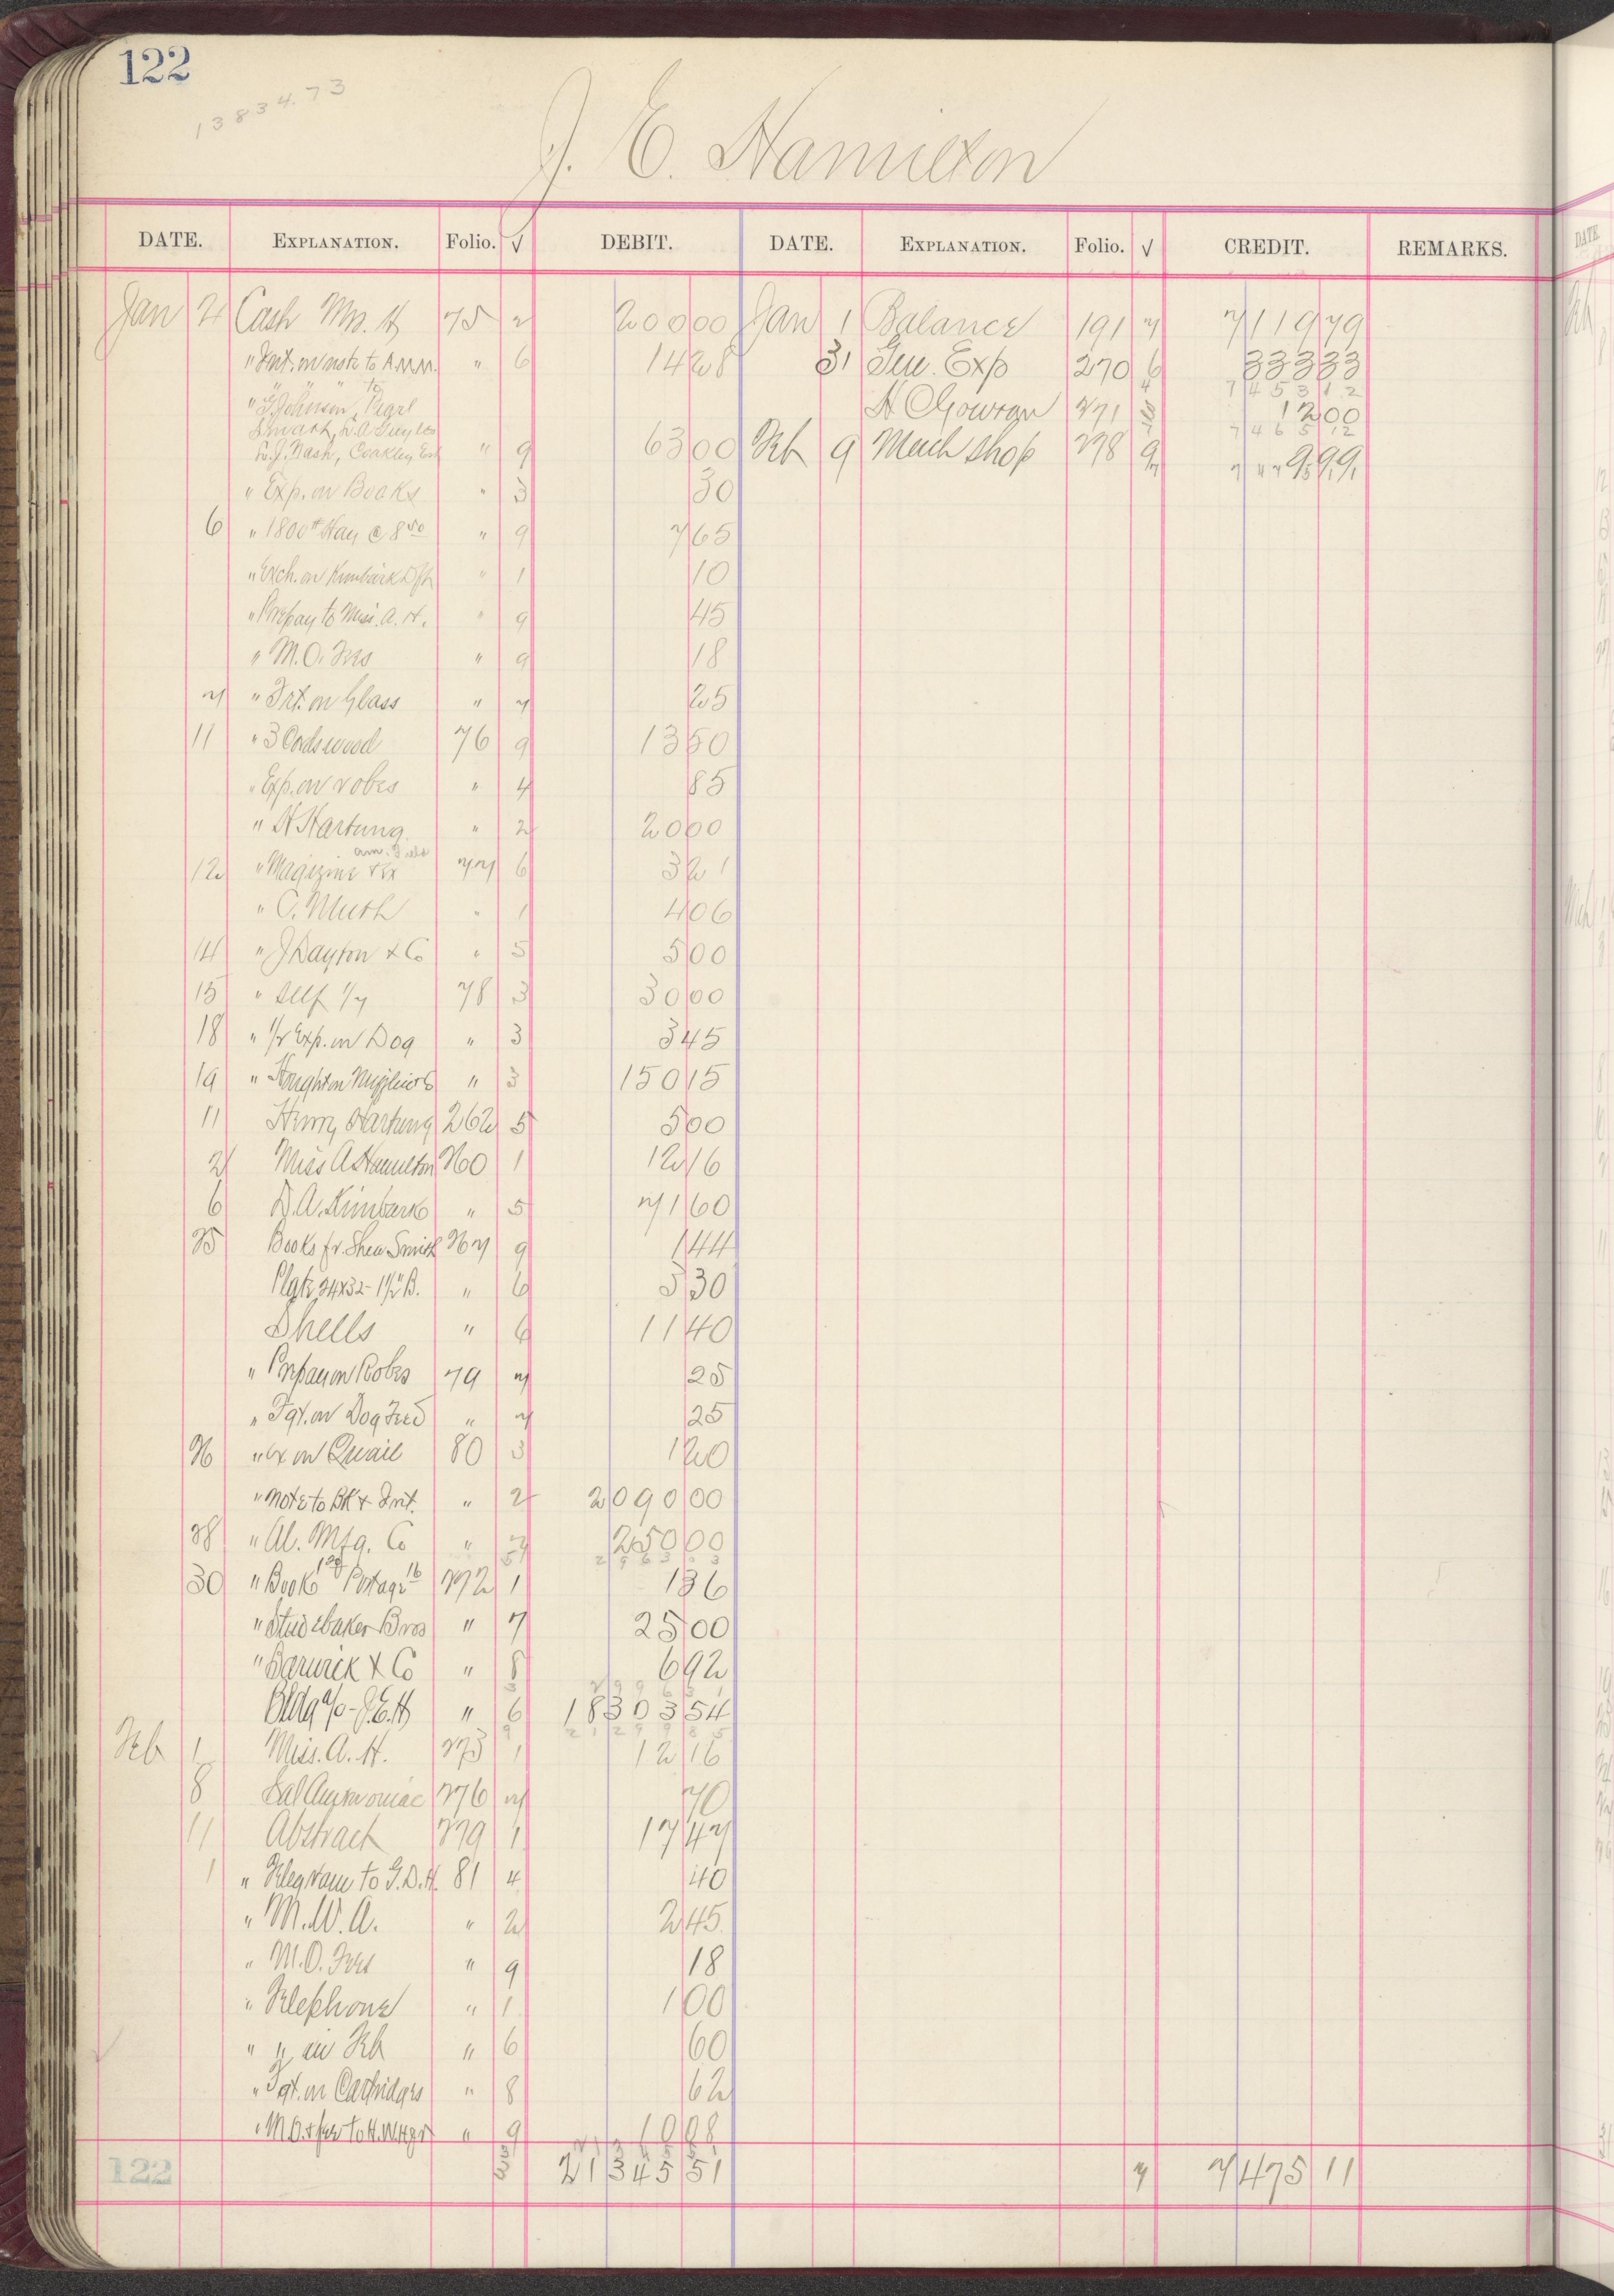 122
13834.73
J. E. Hamilton
DATE. EXPLANATION. Folio. √ DEBIT. DATE. EXPLANATION. Folio. √ CREDIT. REMARKS.
Jan 2 Cash Mrs. H 75 2 200 00 Jan 1 Balance 191 7 7119 79
" Int. on note to A.M.M. " 6 14 28 31 Gen. Exp 270 6 333 33
7453 12
" " " to
" G. Johnson, Pearl H Gowran 271 12 00
7465 12
Swarth, L. A.
L. J. Nash, Coakley Est " 9 63 00 Feb 9 Mach Shop 278 9 9 99
" Exp. on Books " 3 30
6 " 1800# Hay @ 8 50 " 9 7 65
" Exch. on Kimbark Dft " 1 10
" Prepay to Miss. A. H. " 9 45
" M. O. Fees " 9 18
7 " Frt. on Glass " 7 25
11 " 3 Cords wood 76 9 13 50
" Exp. on robes " 4 85
" H Hartung " 2 20 00
am. Field
12 " Magizine & Ex 77 6 3 21
" C. Muth " 1 4 06
14 " J Dayton & Co " 5 5 00
15 " self 1/7 78 3 30 00
18 " 1/2 Exp. on Dog " 3 3 45
19 " Houghton Mifflin & Co " 3 150 15
11 Henry Hartung 262 5 5 00
2 Miss A Hamilton 260 1 12 16
6 D. A. Kimbark " 5 71 60
25 Books fr. Shea Smith 267 9 1 44
Plate 24x32 - 1 1/2" B. " 6 5 30
Shells " 6 11 40
" Prepay on Robes 79 7 25
" Fgt. on Dog Feed " 7 25
26 " Ex on Quail 80 3 1 20
" Note to Bk & Int. " 2 2090 00
28 " Al. Mfg. Co " 7 250 00
2963 03
30 " Book 1 20 Postage 16 272 1 1 36
" Studebaker Bros " 7 25 00
" Barwick & Co " 8 6 92
2996 31
Bldg a/c - J. E. H " 6 18303 54
21299 85
Feb 1 Miss. A. H. 273 1 12 16
8 Sal Ammoniac 276 7 70
11 Abstract 279 1 17 47
1 " Telegram to G. D. H. 81 4 40
" M. W. A. " 2 2 45
" M. O. Fees " 9 18
" Telephone " 1 1 00
" " in Feb " 6 60
" Fgt. on Cartridges " 8 62
" M. O. & fee to H. W. " 9 10 08
122 21345 51 7 7475 11